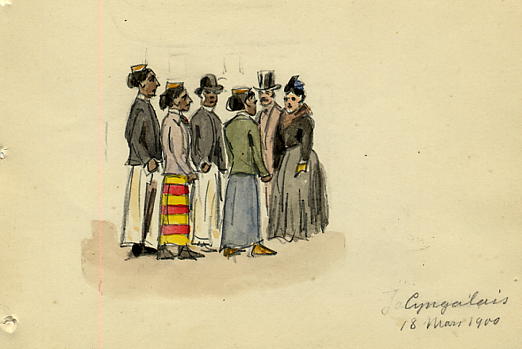 Cyngalais
18 Mars 1900